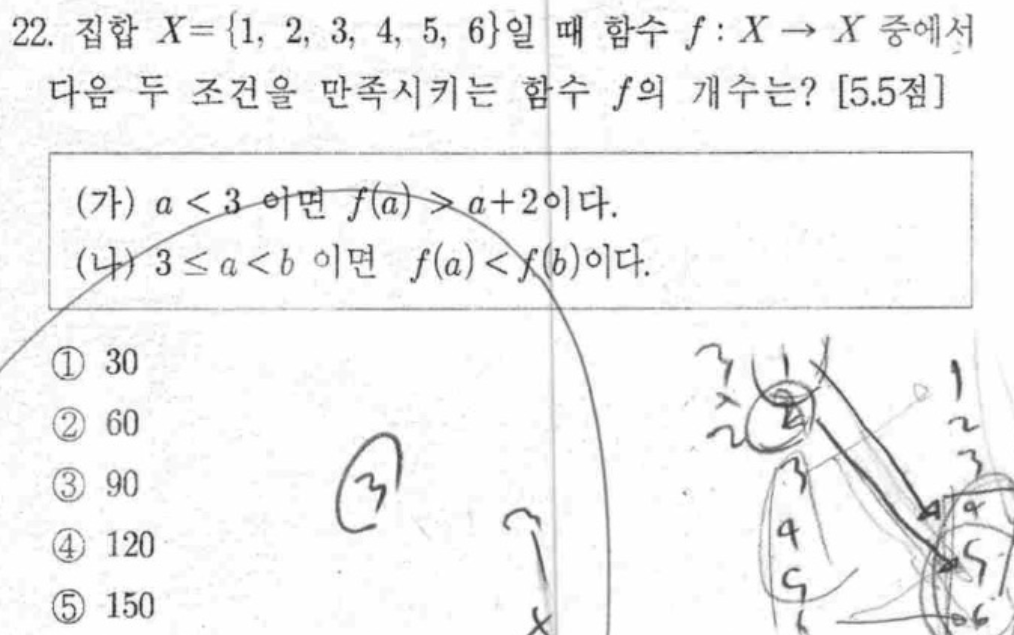 22. 집합 X={1, 2, 3, 4, 5, 6}일 때 함수 f : X → X 중에서
다음 두 조건을 만족시키는 함수 f의 개수는? [5.5점]
(가) a < 3 이면 f(a) > a+2이다.
(나) 3 ≤ a < b 이면 f(a) < f(b)이다.
① 30
② 60
③ 90
④ 120
⑤ 150
3
3 1 1
x 2 2
2 3 3
4 4
5 5
6 6